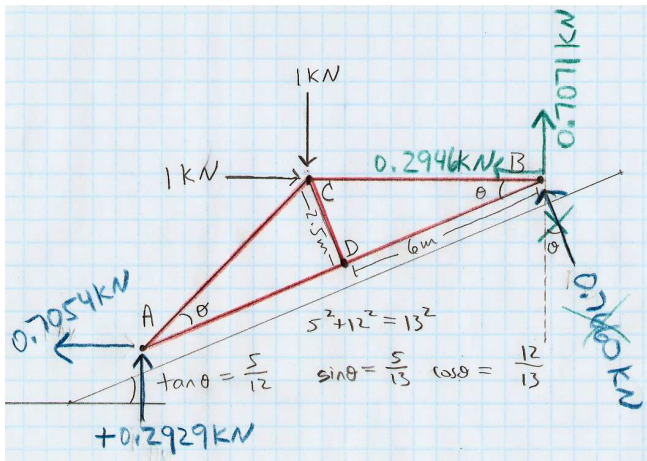 1KN
0.7071KN
1KN
0.2946KN
B
C
θ
2.5m
D
6m
θ
A
θ
0.7054KN
5²+12²=13²
tanθ = 5/12
sinθ = 5/13
cosθ = 12/13
+0.2929KN